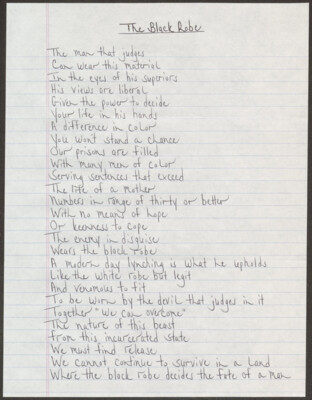 The Black Robe
The man that judges
Can wear this material
In the eyes of his superiors
His views are liberal
Given the power to decide
Your life in his hands
A difference in color
You won't stand a chance
Our prisons are filled
With many men of color
Serving sentences that exceed
The life of a mother
Numbers in range of thirty or better
With no means of hope
Or keenness to cope
The enemy in disguise
Wears the black robe
A modern day lynching is what he upholds
Like the white robe but legit
And venomous to fit
To be worn by the devil that judges in it
Together "We can overcome"
The nature of this beast
From this incarcerated state
We must find release
We cannot continue to survive in a Land
Where the black robe decides the fate of a man